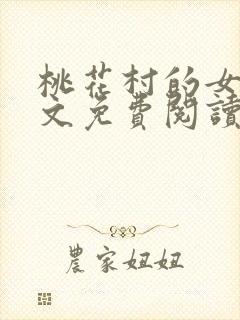 桃花村的女
文免費閱讀
農家妞妞